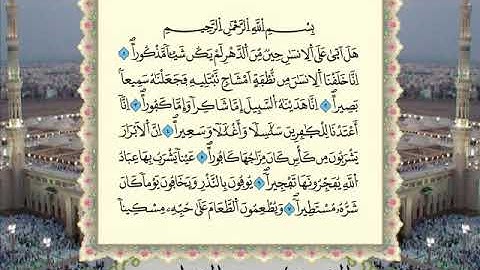 بِسْمِ اللَّهِ الرَّحْمَٰنِ الرَّحِيمِ
هَلْ أَتَىٰ عَلَى الْإِنسَٰنِ حِينٌ مِّنَ الدَّهْرِ لَمْ يَكُن شَيْئًا مَّذْكُورًا ١
إِنَّا خَلَقْنَا الْإِنسَٰنَ مِن نُّطْفَةٍ أَمْشَاجٍ نَّبْتَلِيهِ فَجَعَلْنَٰهُ سَمِيعًا
بَصِيرًا ٢ إِنَّا هَدَيْنَٰهُ السَّبِيلَ إِمَّا شَاكِرًا وَإِمَّا كَفُورًا ٣ إِنَّا
أَعْتَدْنَا لِلْكَٰفِرِينَ سَلَٰسِلَا وَأَغْلَٰلًا وَسَعِيرًا ٤ إِنَّ الْأَبْرَارَ
يَشْرَبُونَ مِن كَأْسٍ كَانَ مِزَاجُهَا كَافُورًا ٥ عَيْنًا يَشْرَبُ بِهَا عِبَادُ
اللَّهِ يُفَجِّرُونَهَا تَفْجِيرًا ٦ يُوفُونَ بِالنَّذْرِ وَيَخَافُونَ يَوْمًا كَانَ
شَرُّهُ مُسْتَطِيرًا ٧ وَيُطْعِمُونَ الطَّعَامَ عَلَىٰ حُبِّهِ مِسْكِينًا